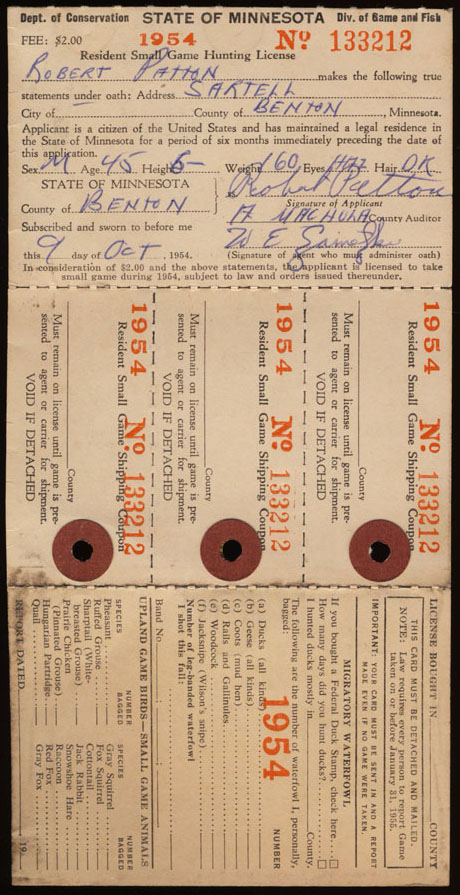 Dept. of Conservation STATE OF MINNESOTA Div. of Game and Fish
FEE: $2.00 1954 No 133212
Resident Small Game Hunting License
ROBERT PATTON makes the following true
statements under oath: Address SARTELL
City of County of BENTON, Minnesota.
Applicant is a citizen of the United States and has maintained a legal residence in
the State of Minnesota for a period of six months immediately preceding the date of
this application.
Sex M Age 45 Height 6- Weight 160 Eyes HAZ Hair DK
STATE OF MINNESOTA Robert Patton
Signature of Applicant
County of BENTON MACHULA County Auditor
Subscribed and sworn to before me W E
this 9 day of OCT, 1954. (Signature of agent who must administer oath)
In consideration of $2.00 and the above statements, the applicant is licensed to take
small game during 1954, subject to law and orders issued thereunder.
1954 No 133212
Resident Small Game Shipping Coupon
County
Must remain on license until game is pre-
sented to agent or carrier for shipment.
VOID IF DETACHED
1954 No 133212
Resident Small Game Shipping Coupon
County
Must remain on license until game is pre-
sented to agent or carrier for shipment.
VOID IF DETACHED
1954 No 133212
Resident Small Game Shipping Coupon
County
Must remain on license until game is pre-
sented to agent or carrier for shipment.
VOID IF DETACHED
LICENSE BOUGHT IN COUNTY
THIS CARD MUST BE DETACHED AND MAILED.
NOTE: Law requires every person to report Game
taken on or before January 31, 1955.
IMPORTANT: YOUR CARD MUST BE SENT IN AND A REPORT
MADE EVEN IF NO GAME WERE TAKEN.
MIGRATORY WATERFOWL
If you bought a Federal Duck Stamp, check here
How many days did you hunt ducks?
I hunted ducks mostly in County.
The following are the number of waterfowl I, personally,
bagged: 1954 NUMBER
(a) Ducks (all kinds)
(b) Geese (all kinds)
(c) Coots (mud hen)
(d) Rails and Gallinules
(e) Woodcock
(f) Jacksnipe (Wilson's snipe)
Number of leg-banded waterfowl
I shot this fall:
Band No.
UPLAND GAME BIRDS—SMALL GAME ANIMALS
SPECIES NUMBER BAGGED SPECIES NUMBER BAGGED
Pheasant Gray Squirrel
Ruffed Grouse Fox Squirrel
Sharptail (White- Cottontail
breasted Grouse) Jack Rabbit
Prairie Chicken Snowshoe Hare
(Pinnated Grouse) Raccoon
Hungarian Partridge Red Fox
Quail Gray Fox
REPORT DATED 19